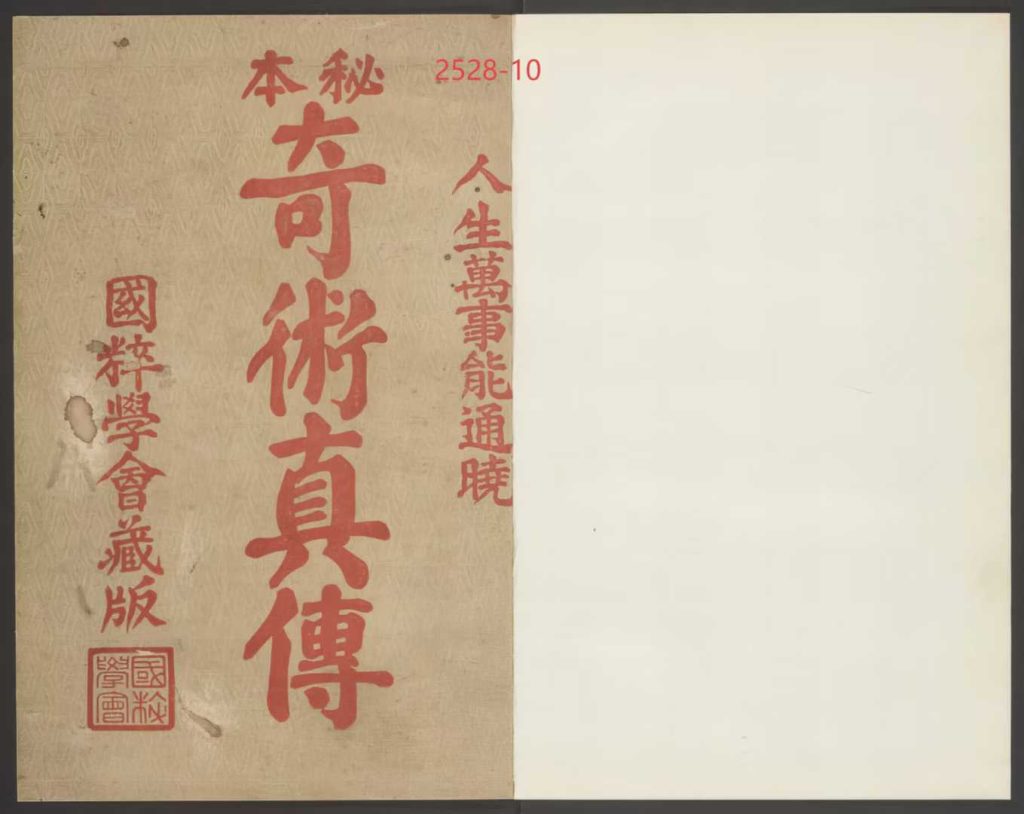 2528-10
人生萬事能通曉
秘本
奇術真傳
國粹學會藏版
國粹學會